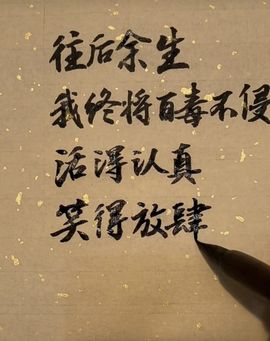 往后余生
我终将百毒不侵
活得认真
笑得放肆